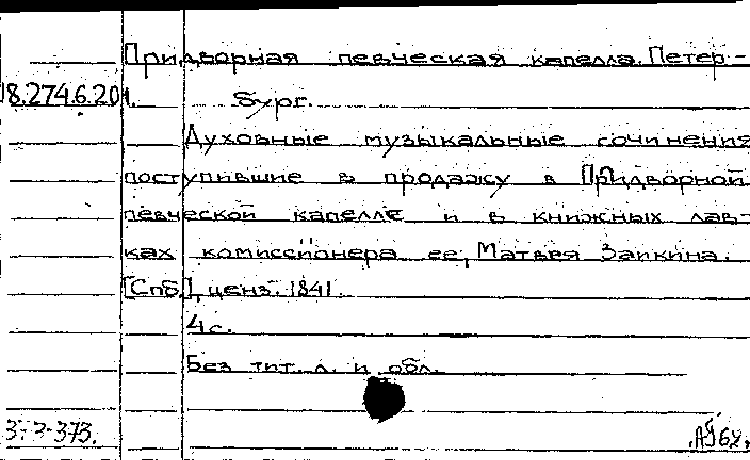 Придворная певческая капелла. Петер-
18.274.6.201.
бург.
Духовные музыкальные сочинения
поступившие в продажу в Придворной
певческой капелле и в книжных лав-
ках комиссионера ее, Матвея Заикина.
[Спб.], ценз. 1841.
4 с.
Без тит. л. и обл.
3-3-373.